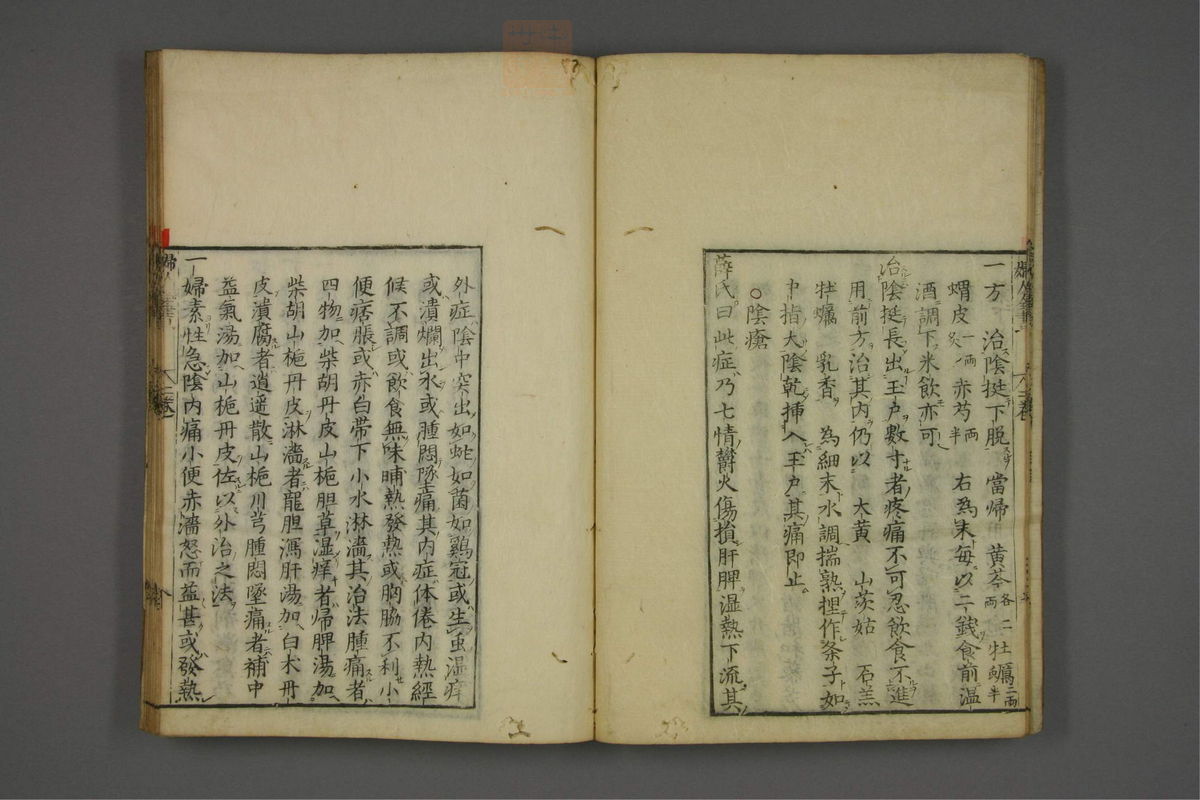 一方 治陰挺下脱 當帰 黄芩各二両 牡蠣二両半
蝟皮一両炙 赤芍両半 右為末毎以二銭食前温
酒調下米飲亦可
治陰挺長出玉戸數寸者疼痛不可忍飲食不進
用前方治其内仍以 大黄 山茨姑 石羔
牡蠣 乳香 為細末水調揣熟捏作条子如
中指大陰乾挿入玉戸其痛即止
○陰瘡
薛氏曰此症乃七情欝火傷損肝脾湿熱下流其
外症陰中突出如蛇如菌如鷄冠或生虫湿痒
或潰爛出水或腫悶墜痛其内症体倦内熱經
候不調或飲食無味晡熱發熱或胸脇不利小
便痞脹或赤白帯下小水淋濇其治法腫痛者
四物加柴胡丹皮山梔胆草湿痒者帰脾湯加
柴胡山梔丹皮淋濇者龍胆瀉肝湯加白木丹
皮潰腐者逍遥散山梔川芎腫悶墜痛者補中
益氣湯加山梔丹皮佐以外治之法
一婦素性急陰内痛小便赤濇怒而益甚或發熱